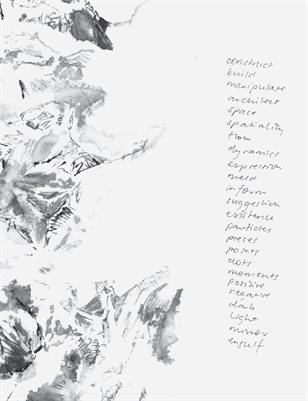 construct
build
manipulate
architect
space
spatiality
flow
dynamics
expression
meld
inform
suggestion
existence
particles
pieces
points
dots
moments
positive
negative
dark
light
mirror
engulf